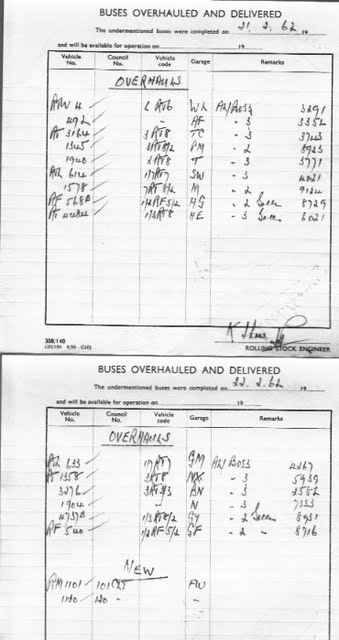 BUSES OVERHAULED AND DELIVERED
The undermentioned buses were completed on 21. 2. 62 19
and will be available for operation on 19
Vehicle No. Council No. Vehicle code Garage Remarks
OVERHAULS
RW 4 6 RT6 WL AW/Boss 3291
492 - AF - 3 3352
RT 3164 3RT8 TC - 3 3743
1345 3RT8/2 PM - 2 8923
1940 3RT8 T - 3 3771
614 1/7RT7 SW - 3 4021
1578 7RT 8/2 M - 2 9124
RF 568 1/2RF5/2 HG - 2 Green 8729
RT 1/3RT8 HE - 3 Green 6021
ROLLING STOCK ENGINEER
308/140
BUSES OVERHAULED AND DELIVERED
The undermentioned buses were completed on 22. 2. 62 19
and will be available for operation on 19
Vehicle No. Council No. Vehicle code Garage Remarks
OVERHAULS
633 1/7RT7 GM AW/Boss 4267
RT 1358 3RT8 NX - 3 5939
3276 3RT3/3 BN - 3 3552
1904 - N - 3 7333
4737 1/3RT8/2 GY - 2 Green 8931
RF 540 1/2RF 5/2 GF - 2 " 8716
NEW
RM 1101 101 CLT FW
1120 120 - -